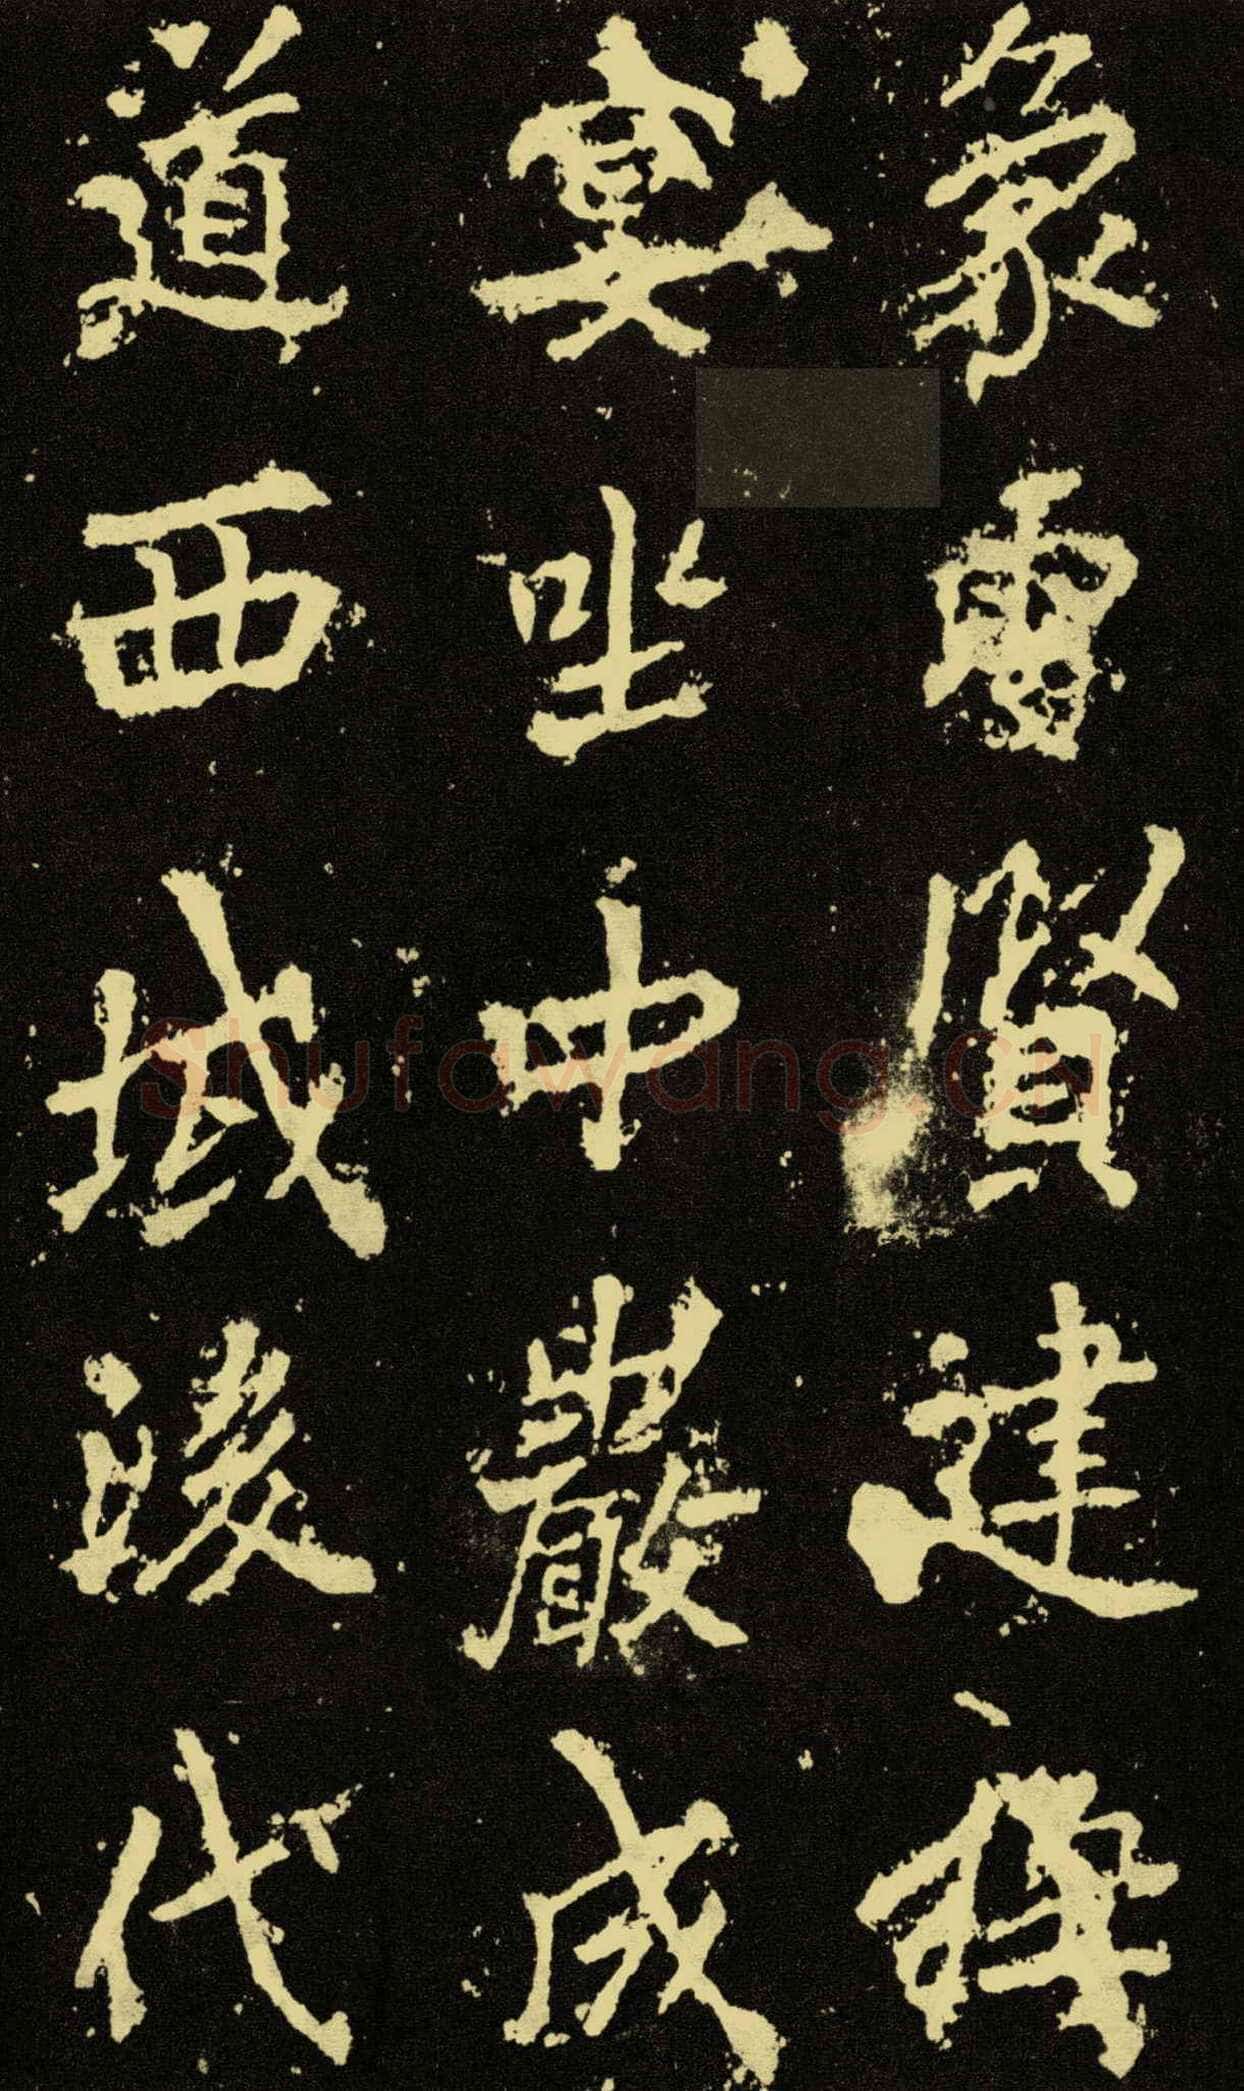 象賢建禪
冥坐中巖成
道西域後代
Shufawang.CN